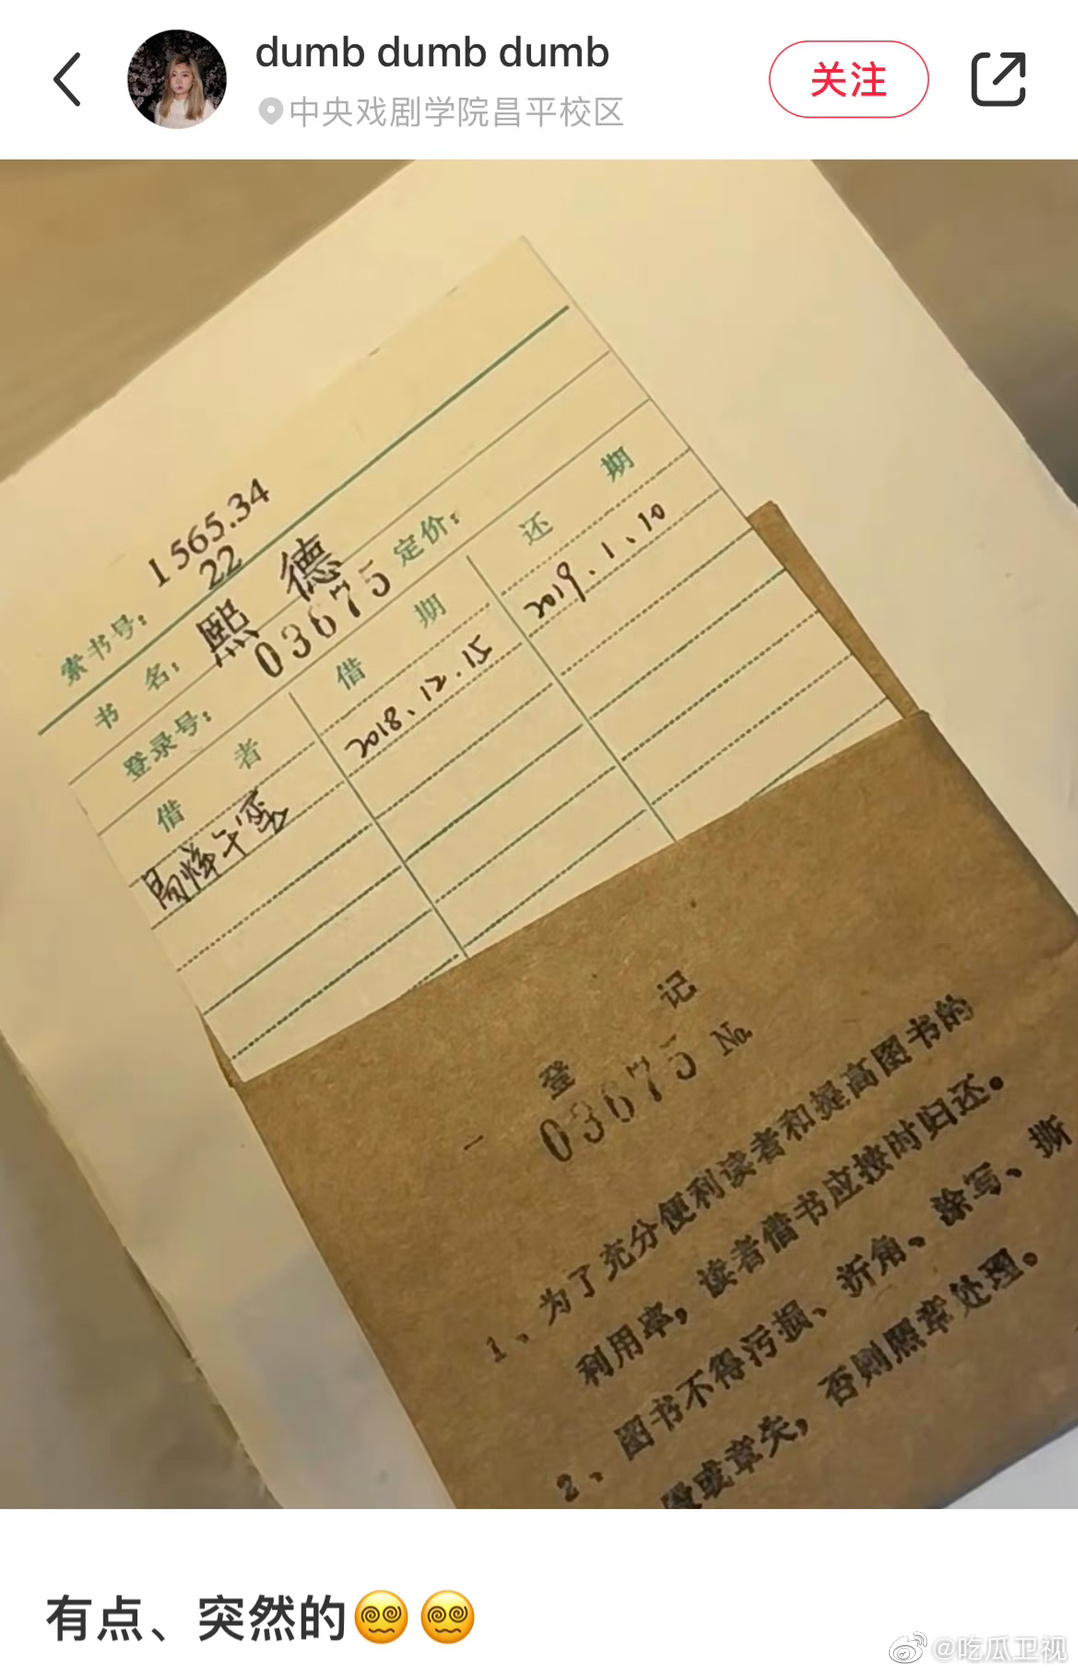 dumb dumb dumb
中央戏剧学院昌平校区
关注
索书号: 1565.34
22
书 名: 熙 德
登录号: 03675 定价:
借 者 借 期 还 期
2018.12.15 2019.1.10
登 记
03675 №
1、为了充分便利读者和提高图书的
利用率，读者借书应按时归还。
2、图书不得污损、折角、涂写、撕
毁或章失，否则照章处理。
有点、突然的😵‍💫😵‍💫
@吃瓜卫视